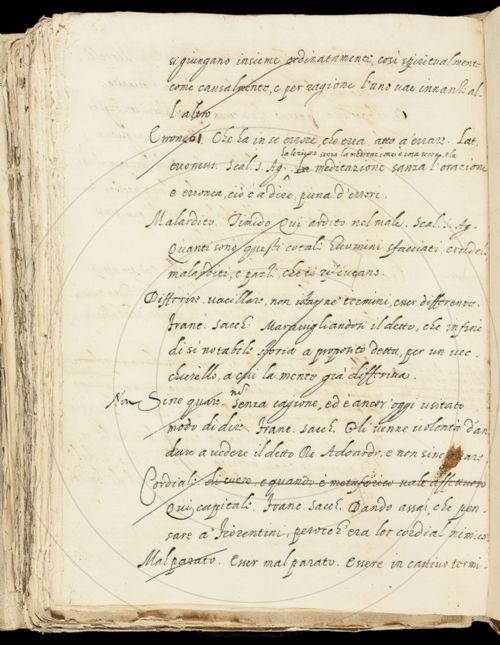 si giungano insieme ordinatamente, così spiritualment-
come causalmente, e per ragione l'uno vae innanzi al-
l'altro.
Erroneo. Che ha in se errore, che erra, atto a errare. Lat.
la lezione senza la meditazione è cosa secca, e la
erroneus. Scal. S. Ag. La meditazione sanza l'orazione
e erronea, ciò è a dire, piena d'errori.
Malardito. Timido Qui ardito nel male. Scal. S. Ag.
Quanti sono questi cotali huomini sfacciati, crudeli
malarditi, e pazzi, che
Differire. vacillare, non termini, esser differente.
Franc. Sacch. Maravigliandosi il detto, che infine
di sì notabile storia a proposito detta, per un vec-
chierello, a cui la mente già differiva.
Non Sine quare. Senza cagione, ed è ancor'oggi usitato
modo di dire. Franc. Sacch. Gli venne volontà d'an
dare a vedere il detto Re Adoardo, e non sine quare.
Cordiali di cuore, e quando è metaforico vale affettuoso
Qui capitali. Franc. Sacch. Dando assai, che pen
sare a Fiorentini, perocch' era lor cordial nimico.
Mal parato. Esser mal parato. Essere in cattivo termi-